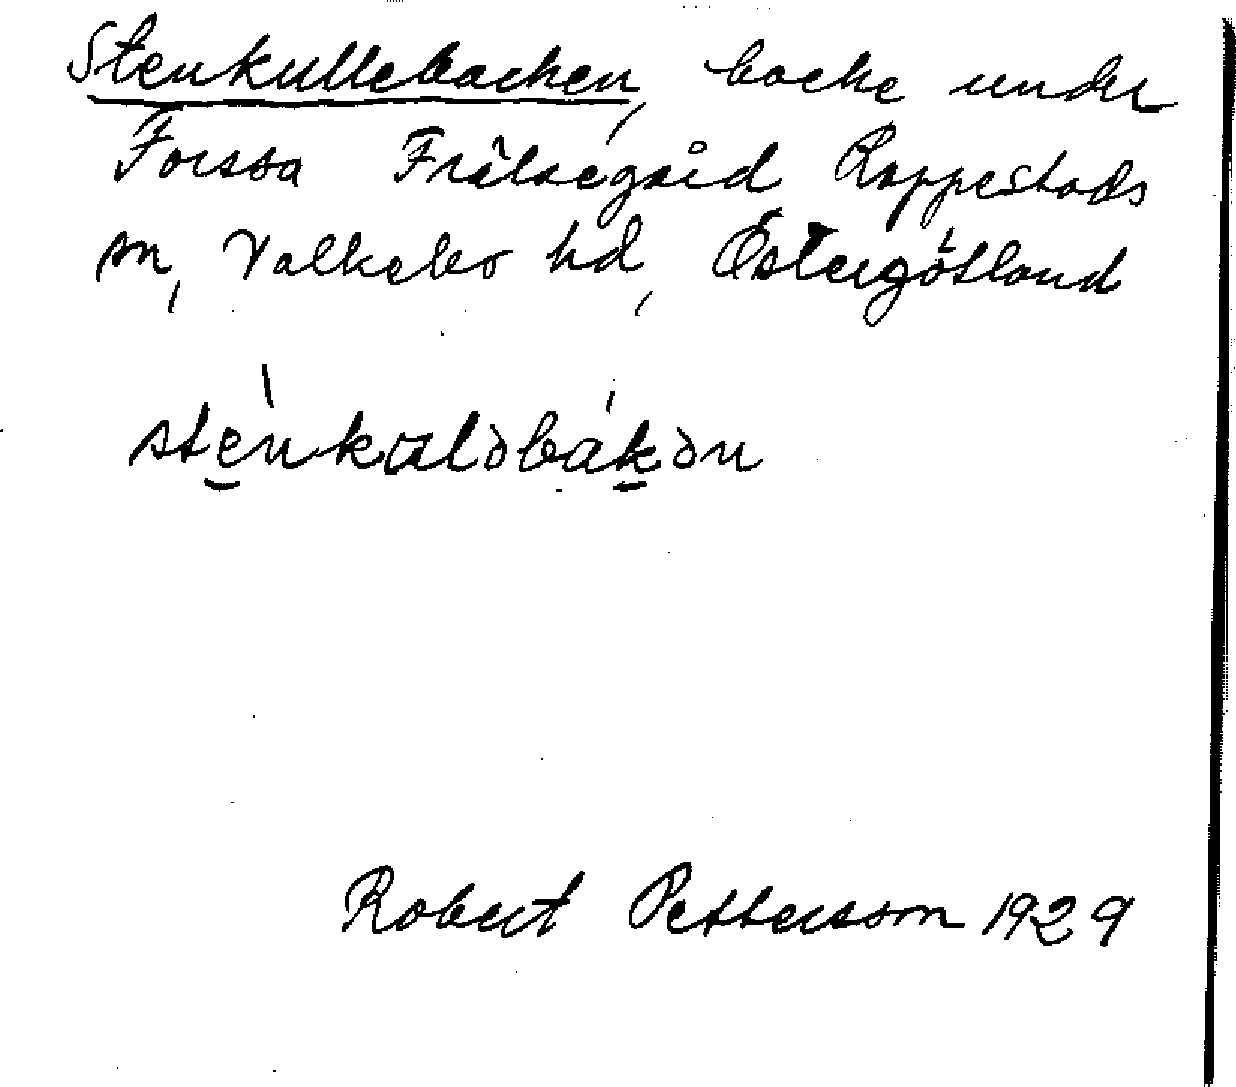 Stenkullebacken, backe under
Forssa Frälsegård Rappestads
sn, Valkebo hd, Östergötland
stènkuləbákən
Robert Pettersson 1929